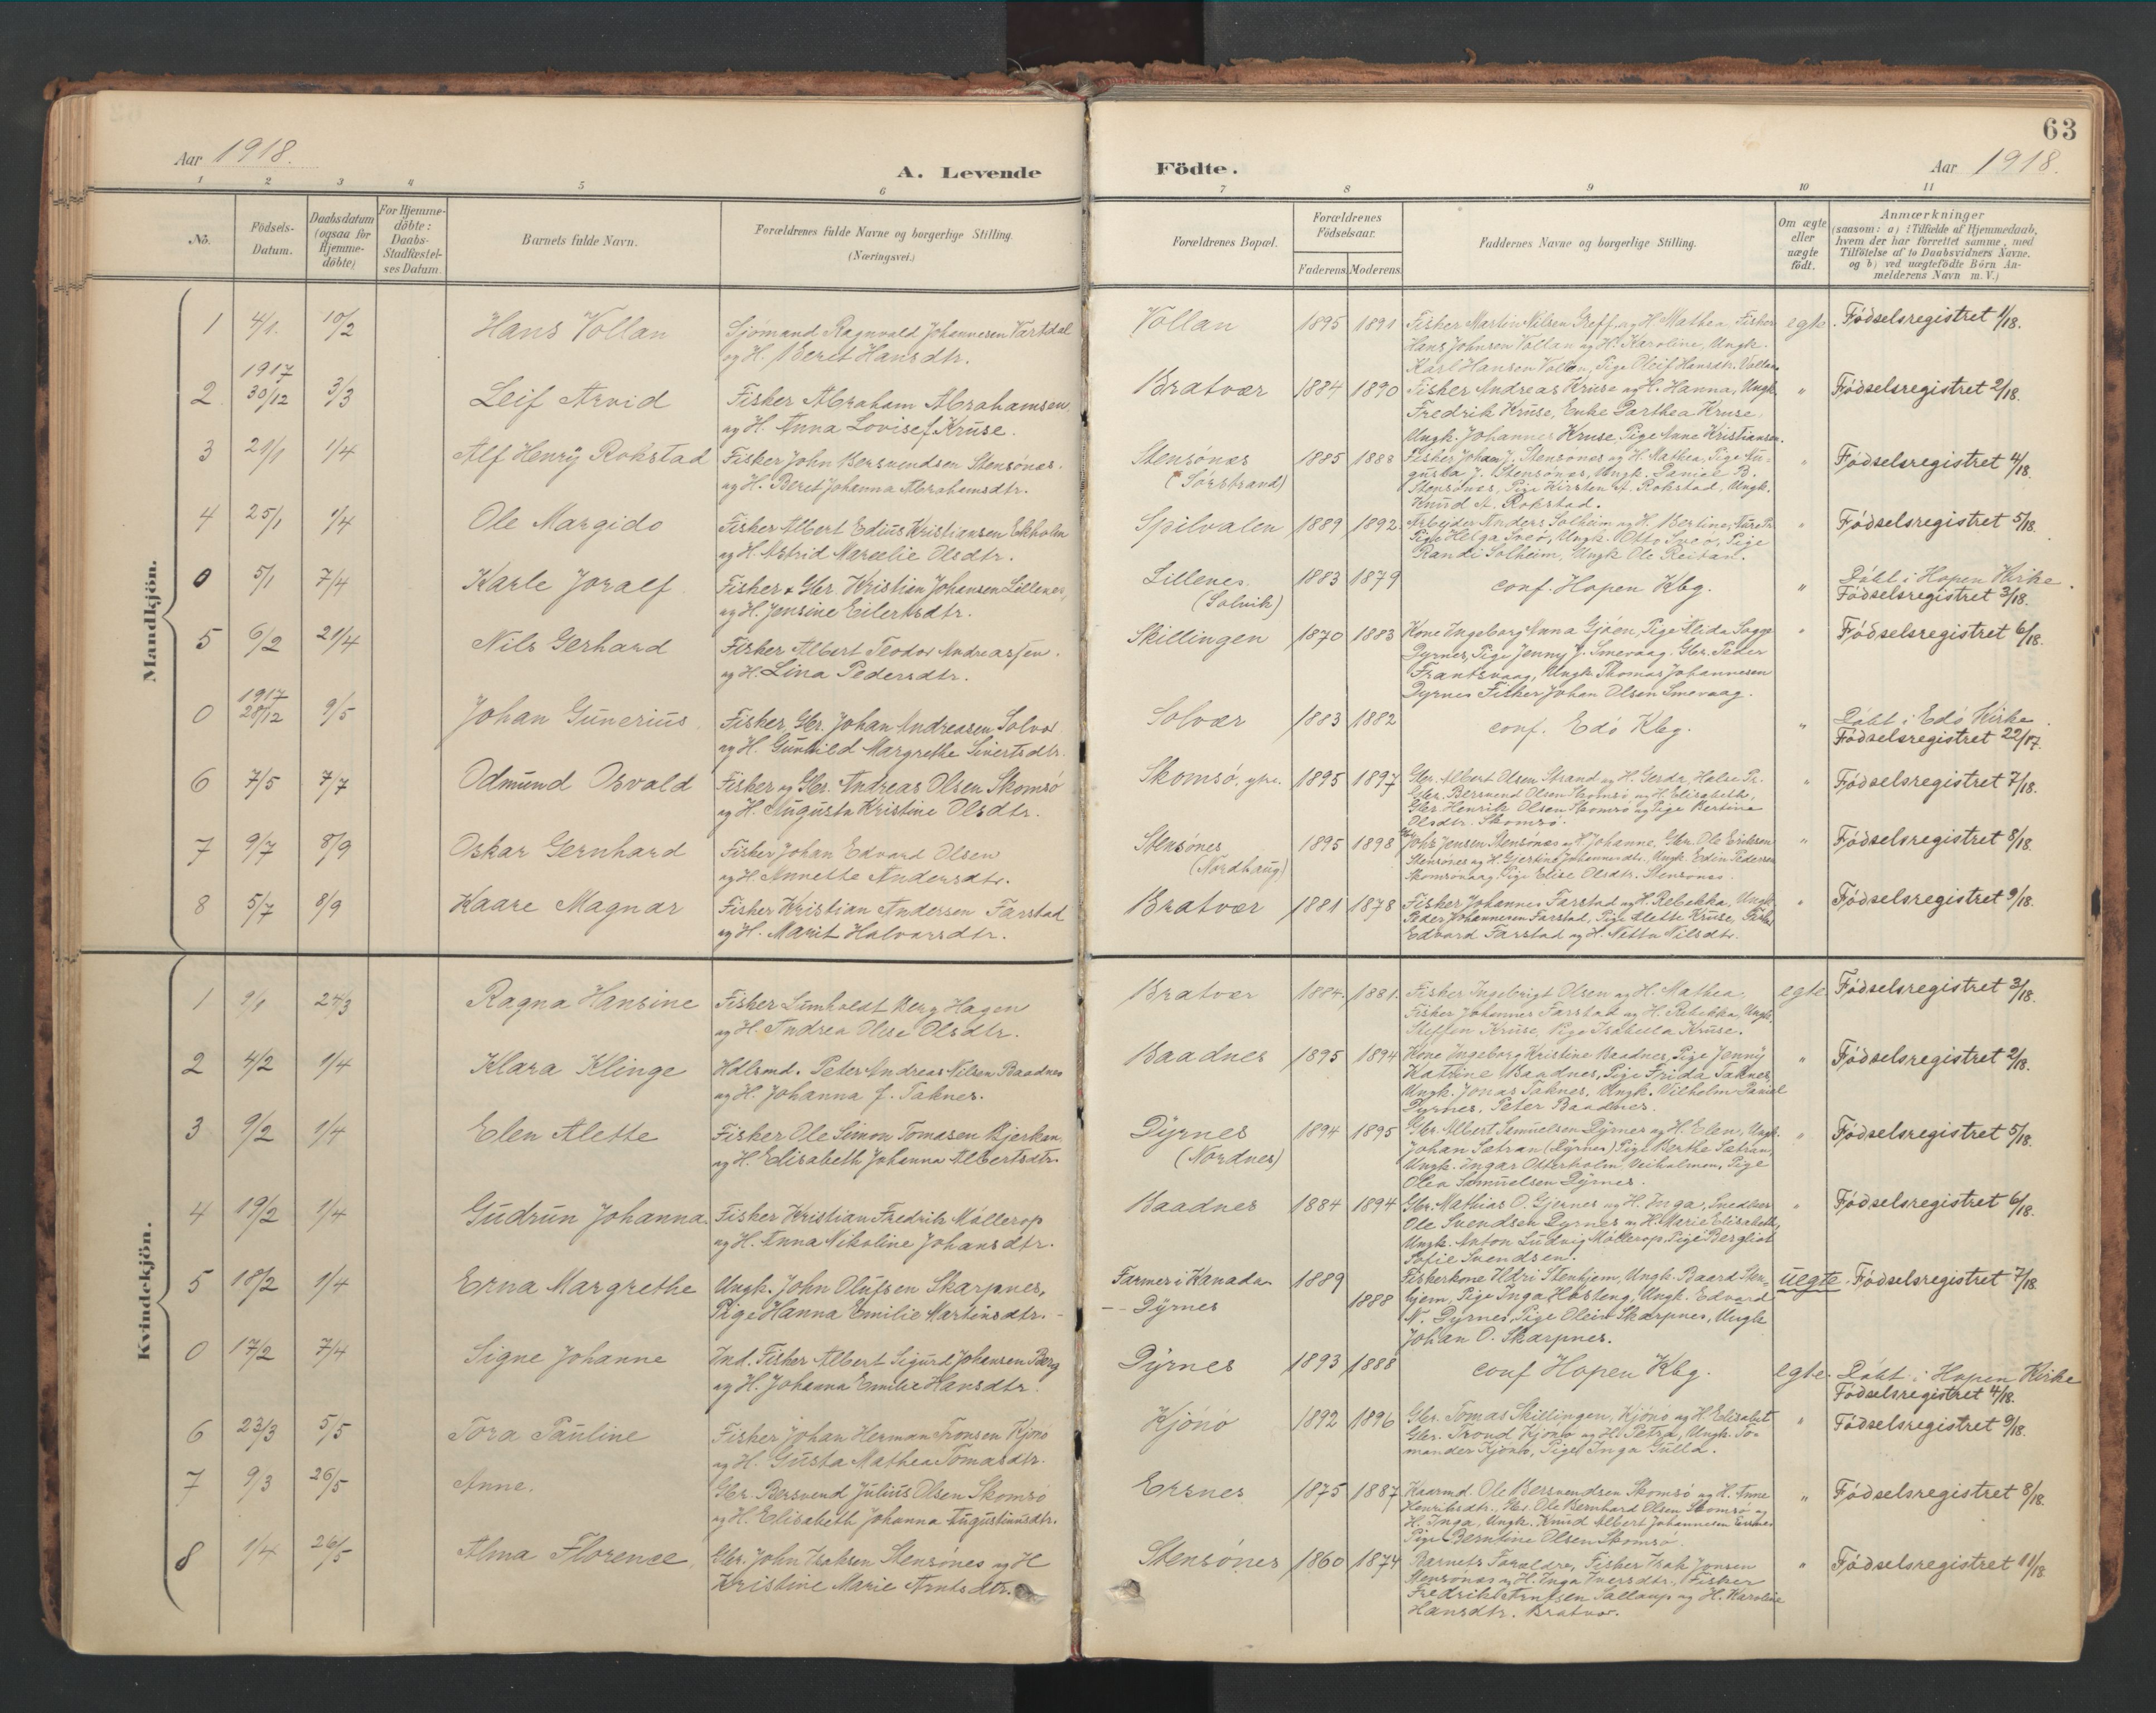 63
Aar 1918.
A. Levende Födte.
Aar 1918.
1 2 3 4 5 6 7 8 9 10 11
No.
Födsels-Datum.
Daabsdatum (ogsaa for Hjemme-döbte)
For Hjemme-döbte: Daabs-Stadfæstel-ses Datum.
Barnets fulde Navn.
Forældrenes fulde Navne og borgerlige Stilling. (Næringsvei.)
Forældrenes Bopæl.
Forældrenes Födselsaar.
Faderens. Moderens.
Faddernes Navne og borgerlige Stilling.
Om ægte eller uægte födt.
Anmærkninger
(saasom: a) i Tilfælde af Hjemmedaab, hvem der har forrettet samme, med Tilföielse af to Daabsvidners Navne, og b) ved uægtefödte Börn An-melderens Navn m. V.)
Mandkjön.
1 4/1. 10/2 Hans Vollan
Sjömand Ragnvald Johannesen Vartdal
og H. Beret Hansdtr.
Vollan 1895 1891
Fisker Martin Nilsen Greff og H. Mathea, Fisker
Hans Johnsen Vollan og H. Karoline, Ungk.
Karl Hansen Vollan, Pige Oleif Hansdtr. Vollan
egte. Födselsregistret 1/18.
2 1917 30/12 3/3 Leif Arvid
Fisker Abraham Abrahamsen
og H. Anna Lovise f. Kruse.
Bratvær 1884 1890
Fisker Andreas Kruse og H. Hanna, Ungk.
Fredrik Kruse, Enke Dorthea Kruse,
Ungk. Johannes Kruse, Pige Anne Kristiansen.
" Födselsregistret 2/18.
3 21/1 1/4 Alf Henry Rokstad
Fisker John Bersvendsen Stensönes.
og H. Beret Johanna Abrahamsdtr.
Stensönes (Sörstrand) 1885 1888
Fisker Johan J. Stensönes og H. Mathea, Pige Au-
gusta J. Stensönes, Ungk. Daniel B.
Stensönes, Pige Kirsten A. Rokstad, Ungk.
Knud A. Rokstad.
" Födselsregistret 4/18.
4 25/1 1/4 Ole Margido
Fisker Albert Edius Kristiansen Ekholm
og H. Astrid Marelie Olsdtr.
Spilvalen 1889 1892
Arbeider Anders Solheim og H. Bertine,
Pige Helga Sveo, Ungk. Otto Sveo, Pige
Randi Solheim, Ungk Ole Reitan.
" Födselsregistret 5/18.
0 5/1 7/4 Karle Joralf
Fisker & Gbr. Kristian Johansen Lillenes,
og H. Jensine Eilertsdtr.
Lillenes. (Solvik) 1883 1879
conf. Hopen Kbg.
" Döbt i Hopen Kirke.
Födselsregistret 3/18.
5 6/2 21/4 Nils Gerhard
Fisker Albert Teodor Andreassen.
og H. Lina Pedersdtr.
Skillingen 1870 1883
Kone Ingeborg Anna Gjöen, Pige Alida Sogge
Dyrnes, Pige Jenny J. Smevaag, Gbr. Peder
Frantsvaag, Ungk. Thomas Johannesen
Dyrnes Fisker Johan Olsen Smevaag.
" Födselsregistret 6/18.
0 1917 28/12 9/5 Johan Gunerius
Fisker, Gbr. Johan Andreasen Solvær
og H. Gunhild Margrethe Sivertsdtr.
Solvær 1883 1882
conf. Edö Kbg.
" Döbt i Edö Kirke.
Födselsregistret 22/17.
6 7/5 7/7 Odmund Osvald
Fisker og Gbr. Andreas Olsen Skomsö
og H. Augusta Kristine Olsdtr.
Skomsö, ytre. 1895 1897
Gbr. Albert Olsen Strand og H. Gerda, Halse Pr.
Gbr. Bersvend Olsen Skomsö og H. Elisabeth,
Gbr. Henrik Olsen Skomsö og Pige Bertina
Olsdtr. Skomsö.
" Födselsregistret 7/18.
7 9/7 8/9 Oskar Gernhard
Fisker Johan Edvard Olsen
og H. Annette Andersdtr.
Stensönes (Nordhaug) 1895 1898
Gbr. John Jensen Stensönes og H Johanne, Gbr. Ole Eriksen
Stensönes og H. Gjertine Johannesdtr., Ungk. Edin Pedersen
Skomsövaag, Pige Elise Olsdtr. Stensönes.
" Födselsregistret 8/18.
8 5/7 8/9 Kaare Magnar
Fisker Kristian Andersen Farstad
og H. Marit Halvorsdtr.
Bratvær 1881 1878
Fisker Johannes Farstad og H. Rebekka, Ungk.
Peder Johannesen Farstad, Pige Alette Kruse, Fisker
Edvard Farstad og H. Netta Nilsdtr.
" Födselsregistret 9/18.
Kvindekjön.
1 9/1 24/3 Ragna Hansine
Fisker Lumholdt Berg Hagen
og H. Andrea Olise Olsdtr.
Bratvær 1884. 1881.
Fisker Ingebrigt Olsen og H. Mathea,
Fisker Johannes Farstad og H. Rebekka, Ungk.
Steffen Kruse, Pige Isabella Kruse.
egte. Födselsregistret 3/18.
2 4/2 1/4 Klara Klinge
Hdlsmd. Peter Andreas Nilsen Baadnes
og H. Johanna f. Taknes.
Baadnes 1895 1894
Kone Ingeborg Kristine Baadnes, Pige Jenny
Katrine Baadnes, Pige Frida Taknes,
Ungk. Jonas Taknes, Ungk. Vilhelm Daniel
Dyrnes, Peter Baadnes.
" Födselsregistret 2/18.
3 9/2 1/4 Elen Alette
Fisker Ole Simon Tomasen Bjerkan,
og H. Elisabeth Johanna Albertsdtr.
Dyrnes (Nordnes) 1894 1895
Gbr. Albert Samuelsen Dyrnes og H. Elen, Ungk.
Johan Sætran (Dyrnes) Pige Berthe Sætran,
Ungk. Ingar Otterholm, Veiholmen, Pige
Olea Samuelsen Dyrnes.
" Födselsregistret 5/18.
4 19/2 1/4 Gudrun Johanna.
Fisker Kristian Fredrik Möllerop
og H. Anna Nikoline Johansdtr.
Baadnes 1884 1894
Gbr. Mathias O. Gjernes og H. Inga, Snedker
Ole Svendsen Dyrnes og H. Marie Elisabeth,
Ungk. Anton Ludvig Möllerop, Pige Bergliot
Sofie Svendsen.
" Födselsregistret 6/18.
5 18/2 1/4 Erna Margrethe
Ungk. John Olufsen Skarpnes,
Pige Hanna Emilie Martinsdtr. -
Farmer i Kanada 1889
-- Dyrnes 1888
Fiskerkone Udri Stenhjem, Ungk. Baard Sten-
hjem, Pige Inga Hasteng, Ungk. Edvard
N. Dyrnes, Pige Olein Skarpnes, Ungk
Johan O. Skarpnes.
uegte. Födselsregistret 7/18.
0 17/2 7/4 Signe Johanne
Ind. Fisker Albert Sigurd Johansen Berg
og H. Johanna Emilie Hansdtr.
Dyrnes 1893 1888
conf Hopen Kbg.
egte. Döbt i Hopen Kirke
Födselsregistret 4/18.
6 23/3 5/5 Tora Pauline
Fisker Johan Herman Tronsen Kjönö
og H. Gusta Mathea Tomasdtr.
Kjönö 1892 1896
Gbr. Tomas Skillingen, Kjönö og H. Elisabet
Gbr. Trond Kjönö og H. Petra, Ungk. To-
mander Kjönö, Pige Inga Gulla.
" Födselsregistret 9/18.
7 9/3 26/5 Anne.
Gbr. Bersvend Julius Olsen Skomsö
og H. Elisabeth Johanna Augustinusdtr.
Ersnes 1875 1887
Kaarmd. Ole Bersvendsen Skomsö og H. Anne
Henriksdtr., Gbr. Ole Bernhard Olsen Skomsö og
H. Inga, Ungk. Knud Albert Johannesen Ersnes
Pige Berntine Olsen Skomsö.
" Födselsregistret 8/18.
8 1/4 26/5 Alma Florence.
Gbr. John Isaksen Stensönes og H
Kristine Marie Arntsdtr.
Stensönes 1860 1874
Barnets Forældre, Fisker Isak Jonsen
Stensönes og H. Inga Iversdtr., Fisker
Fredrik Arntsen Sallaup og H. Karoline
Hansdtr. Bratvær.
" Födselsregistret 11/18